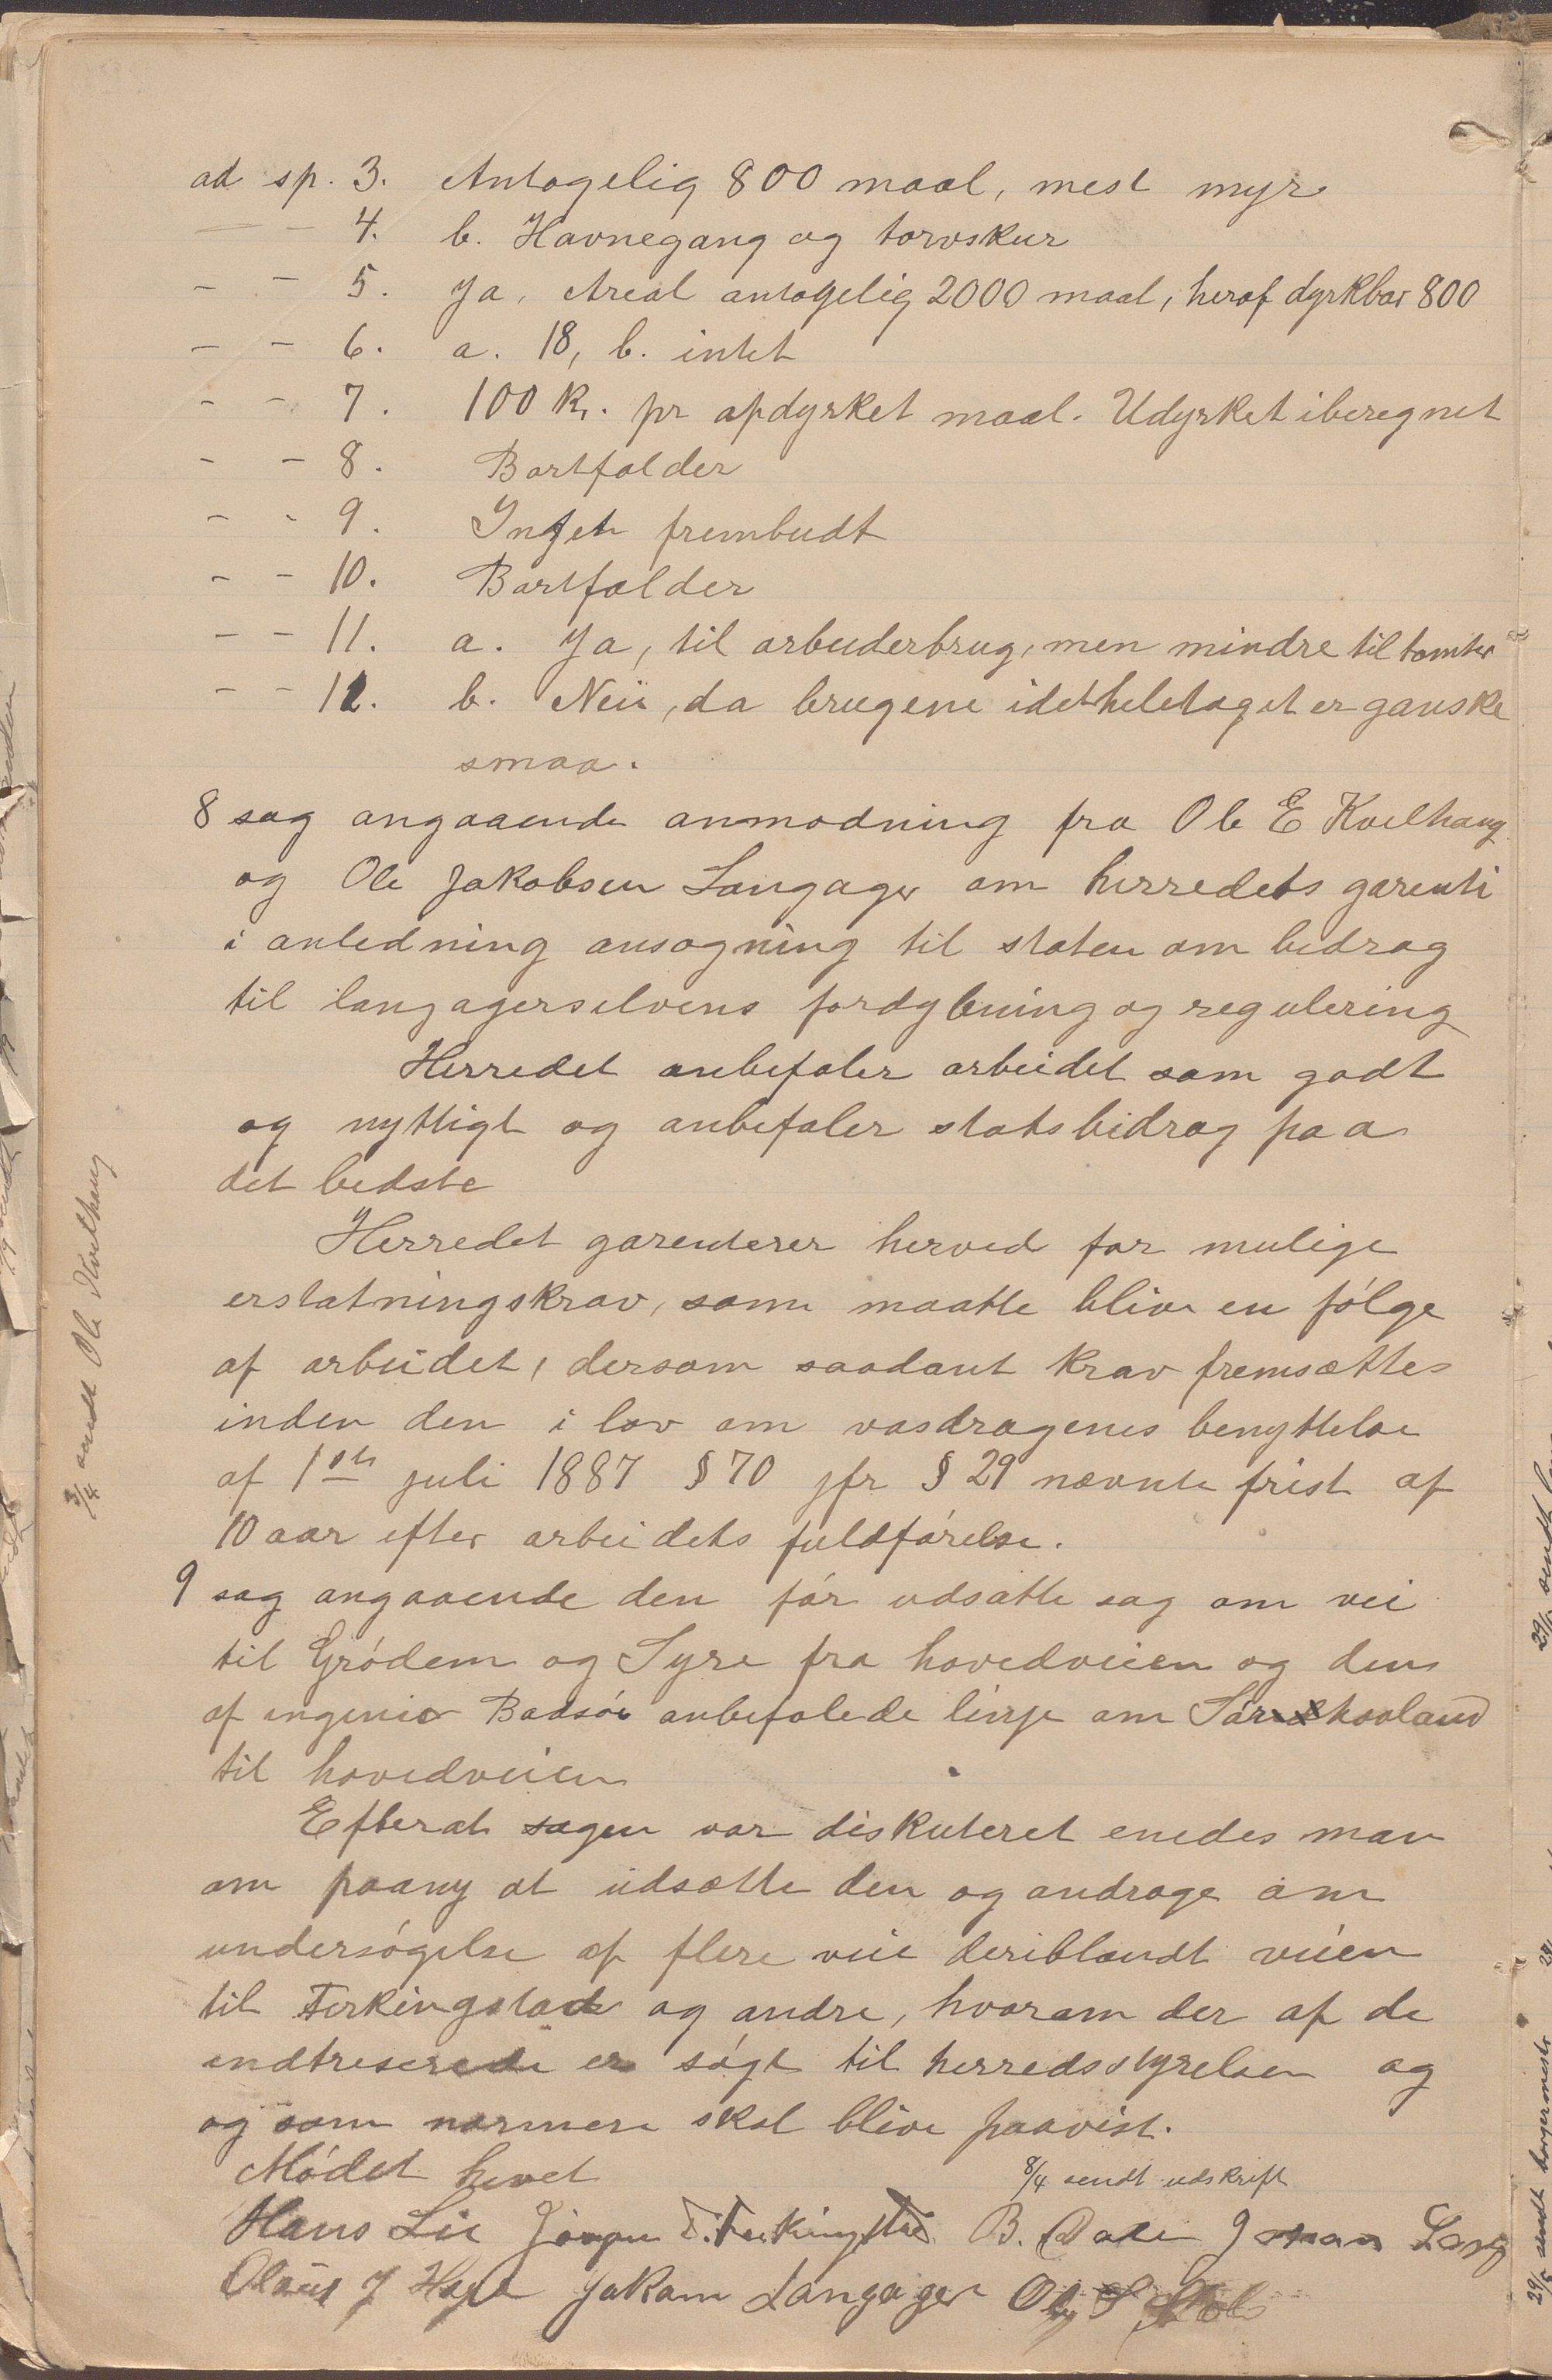 ad sp. 3. Antagelig 800 maal, mest myr
— - 4. b. Havnegang og torvskur
- - 5. Ja, Areal antagelig 2000 maal, heraf dyrkbar 800
- - 6. a. 18, b. intet
- - 7. 100 kr. pr opdyrket maal. Udyrket iberegnet
- - 8. Bortfalder
- - 9. Intet frembudt
- - 10. Bortfalder
- - 11. a. Ja, til arbeiderbrug, men mindre til tomter
- - 12. b. Nei, da brugene idetheletaget er ganske
smaa.
8 sag angaaende anmodning fra Ole E Kvilhaug
og Ole Jakobsen Langager om herredets garenti
i anledning ansøgning til staten om bidrag
til langagerselvens fordybning og regulering
Herredet anbefaler arbeidet som godt
og nyttigt og anbefaler statsbidrag paa
det bedste
Herredet garenterer herved for mulige
erstatningskrav, som maatte blive en følge
af arbeidet, dersom saadant krav fremsættes
inden den i lov om vasdragenes benyttelse
af 1ste juli 1887 § 70 jfr § 29 nævnte frist af
10 aar efter arbeidets fuldførelse.
9 sag angaaende den før udsatte sag om vei
til Grødem og Syre fra hovedveien og den
af ingeniør Badsø anbefalede linje om Sørhaaland
til hovedveien
Efterat sagen var diskuteret enedes man
om paany at udsætte den og andrage om
undersøgelse af flere veie deriblandt veien
til Ferkingstad og andre, hvorom der af de
indtreserede er søgt til herredsstyrelsen og
og som nærmere skal blive paavist.
Mødet hevet
8/4 sendt udskrift
Hans Lie Jørgen F. Ferkingstad B. Dale
Jakom Langager
3/4 sendt Ole Kvilhaug
29/5 sendt borgermester